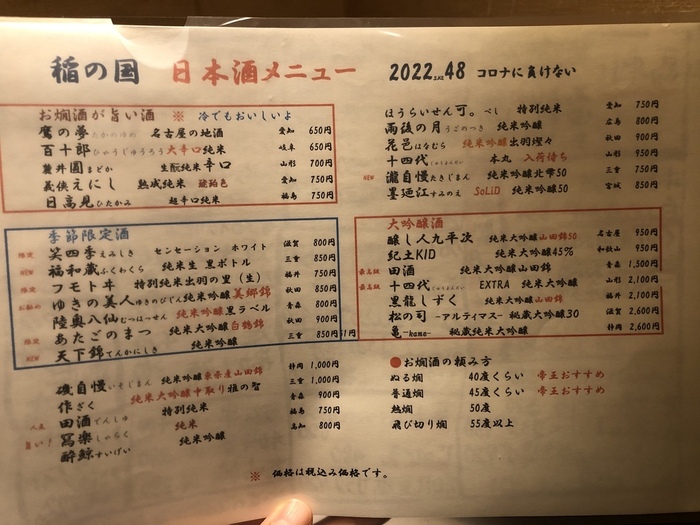 稲の国 日本酒メニュー 2022 48 コロナに負けない
お燗酒が旨い酒 ※ 冷でもおいしいよ
鷹の夢 たかのゆめ 名古屋の地酒 愛知 650円
百十郎 ひゃくじゅうろう 大辛口純米 岐阜 650円
まどか 生酛純米 辛口 山形 700円
義侠えにし 熟成純米 琥珀色 愛知 750円
日高見 ひたかみ 超辛口純米 福島 750円
季節限定酒
限定 笑四季 えみしき センセーション ホワイト 滋賀 800円
NEW 福和蔵 ふくわくら 純米生 黒ボトル 三重 850円
限定 フモトヰ 特別純米出羽の里（生） 福井 750円
お勧め ゆきの美人 ゆきのびじん 純米吟醸 美郷錦 山形 850円
陸奥八仙 むつはっせん 純米吟醸黒ラベル 青森 800円
限定 あたごのまつ 純米大吟醸白鶴錦 秋田 900円
NEW 天下錦 てんかにしき 純米吟醸 三重 850円
磯自慢 いそじまん 純米吟醸東条産山田錦 静岡 1,000円
作 ざく 純米大吟醸中取り雅の智 三重 1,000円
人気 田酒 でんしゅ 特別純米 青森 900円
旨い！ 写楽 しゃらく 純米 福島 750円
酔鯨 すいげい 純米吟醸 高知 800円
ほうらいせん可。 べし 特別純米 愛知 750円
雨後の月 うごのつき 純米吟醸 広島 800円
花邑 はなむら 純米吟醸出羽燦々 秋田 900円
十四代 本丸 入荷待ち 山形 950円
NEW 瀧自慢 たきじまん 純米大吟醸北雫50 三重 750円
墨廼江 すみのえ SoLiD 純米吟醸50 宮城 850円
大吟醸酒
醸し人九平次 純米大吟醸山田錦50 名古屋 950円
紀土KID 純米大吟醸45% 和歌山 950円
最高級 田酒 純米大吟醸山田錦 青森 1,500円
最高級 十四代 EXTRA 純米大吟醸 山形 2,100円
黒龍しずく 純米大吟醸山田錦 福井 2,100円
松の司 -アルティマス- 秘蔵大吟醸30 滋賀 2,600円
亀 -kame- 秘蔵純米大吟醸 静岡 2,600円
●お燗酒の頼み方
ぬる燗 40度くらい 帝王おすすめ
普通燗 45度くらい 帝王おすすめ
熱燗 50度
飛び切り燗 55度以上
※ 価格は税込み価格です。